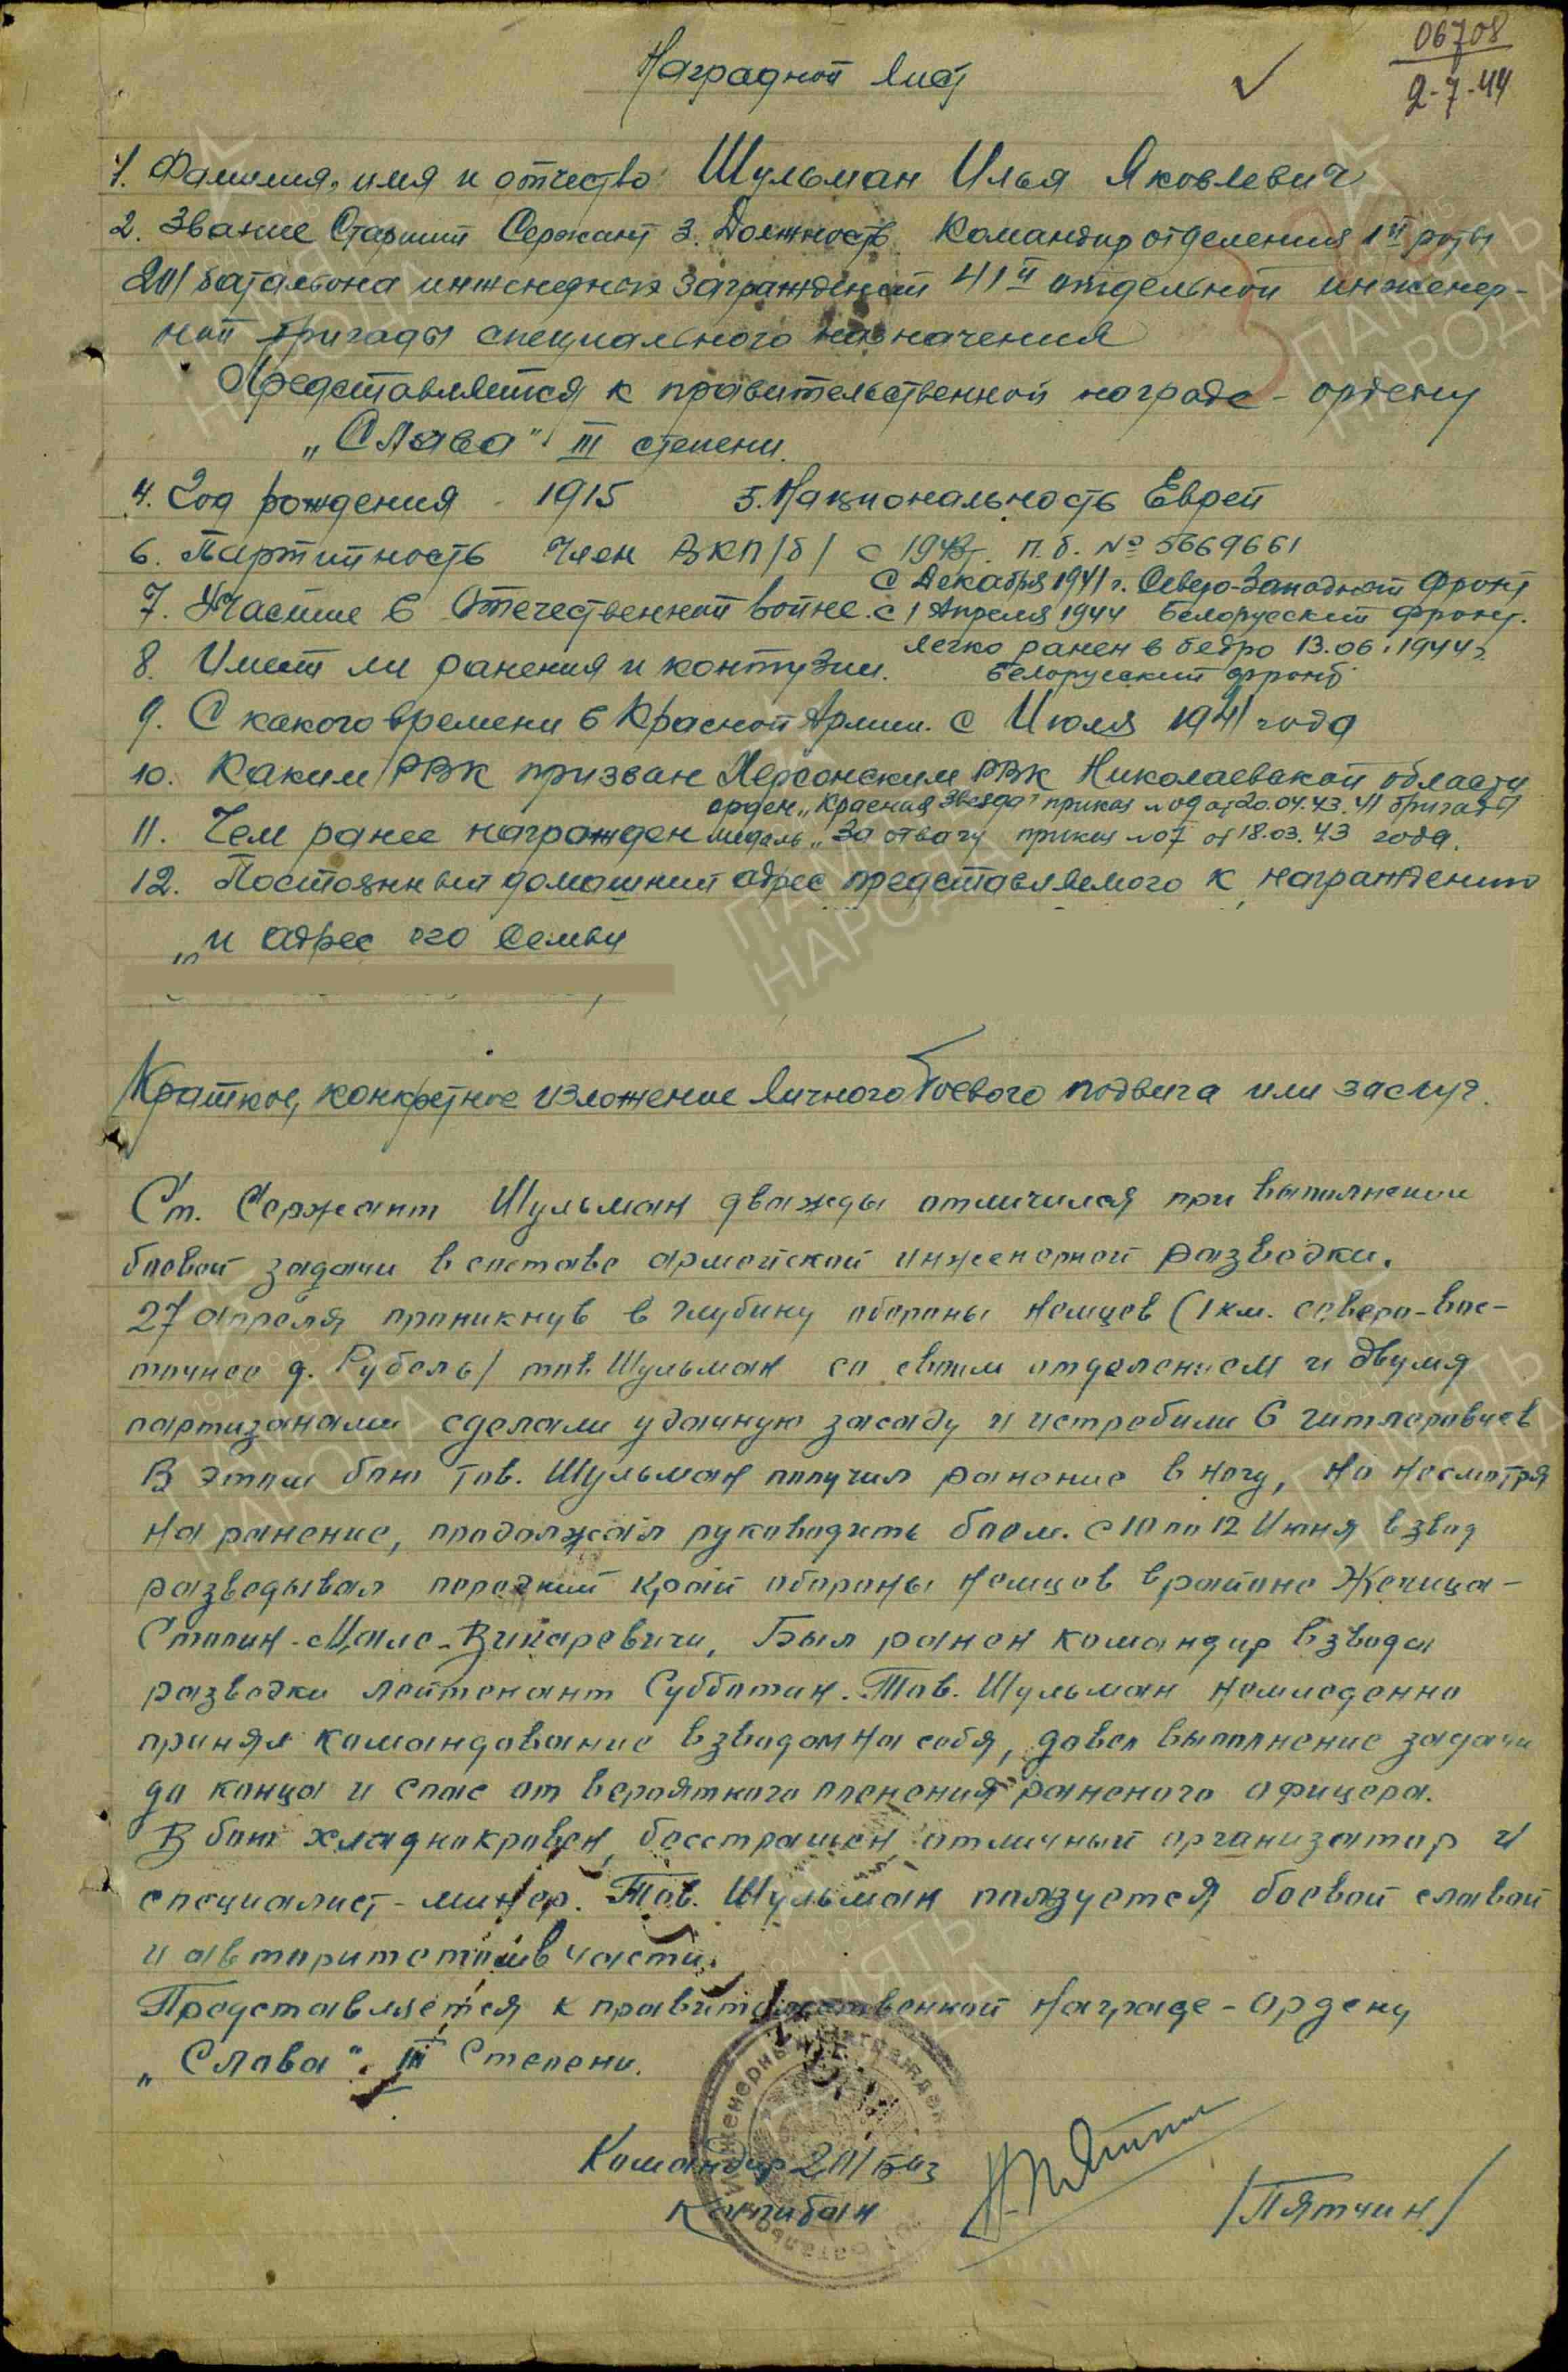 06708
2-7-44
Наградной лист
1. Фамилия, имя и отчество Шульман Илья Яковлевич
2. Звание Старший Сержант 3. Должность Командир отделения 1й роты
201 батальона инженерных заграждений 41й отдельной инженер-
ной бригады специального назначения
Представляется к правительственной награде - ордену
„Слава" III степени.
4. Год рождения 1915 5. Национальность Еврей
6. Партийность Член ВКП/б/ с 1943г. П.б. № 5669661
с Декабря 1941 г. Северо-Западной Фронт
7. Участие в Отечественной войне. с 1 Апреля 1944 Белорусский фронт.
легко ранен в бедро 13.06.1944г.
8. Имеет ли ранения и контузии. Белорусский фронт
9. С какого времени в Красной Армии. с Июля 1941 года
10. Каким РВК призван Херсонским РВК Николаевской области
орден „Красная Звезда" приказ №09 от 20.04.43. 41 бригады
11. Чем ранее награжден медаль „За отвагу приказ №07 от 18.03.43 года.
12. Постоянный домашний адрес представляемого к награждению
и адрес его семьи
Краткое, конкретное изложение личного боевого подвига или заслуг.
Ст. Сержант Шульман дважды отличился при выполнении
боевой задачи в составе армейской инженерной разведки.
27 апреля, проникнув в глубину обороны немцев (1 км. северо-вос-
точнее д. Рубель/ тов. Шульман со своим отделением и двумя
партизанами сделали удачную засаду и истребили 6 гитлеровцев
В этом бою тов. Шульман получил ранение в ногу, но несмотря
на ранение, продолжал руководить боем. С 10 по 12 Июня взвод
разведывал передний край обороны немцев в районе Жечица-
Столин - Мале-Викаревичи, Был ранен командир взвода
разведки лейтенант Субботин. Тов. Шульман немиеденно
принял командование взводом на себя, довел выполнение задачи
до конца и спас от вероятного пленения раненого офицера.
В бою хладнокровен, бесстрашен, отличный организатор и
специалист - минер. Тов. Шульман пользуется боевой славой
и авторитетом в части.
Представляется к правительственной награде - ордену
„Слава". III Степени.
Командир 201 баз
Капитан
/Пятчин/
ПАМЯТЬ
НАРОДА